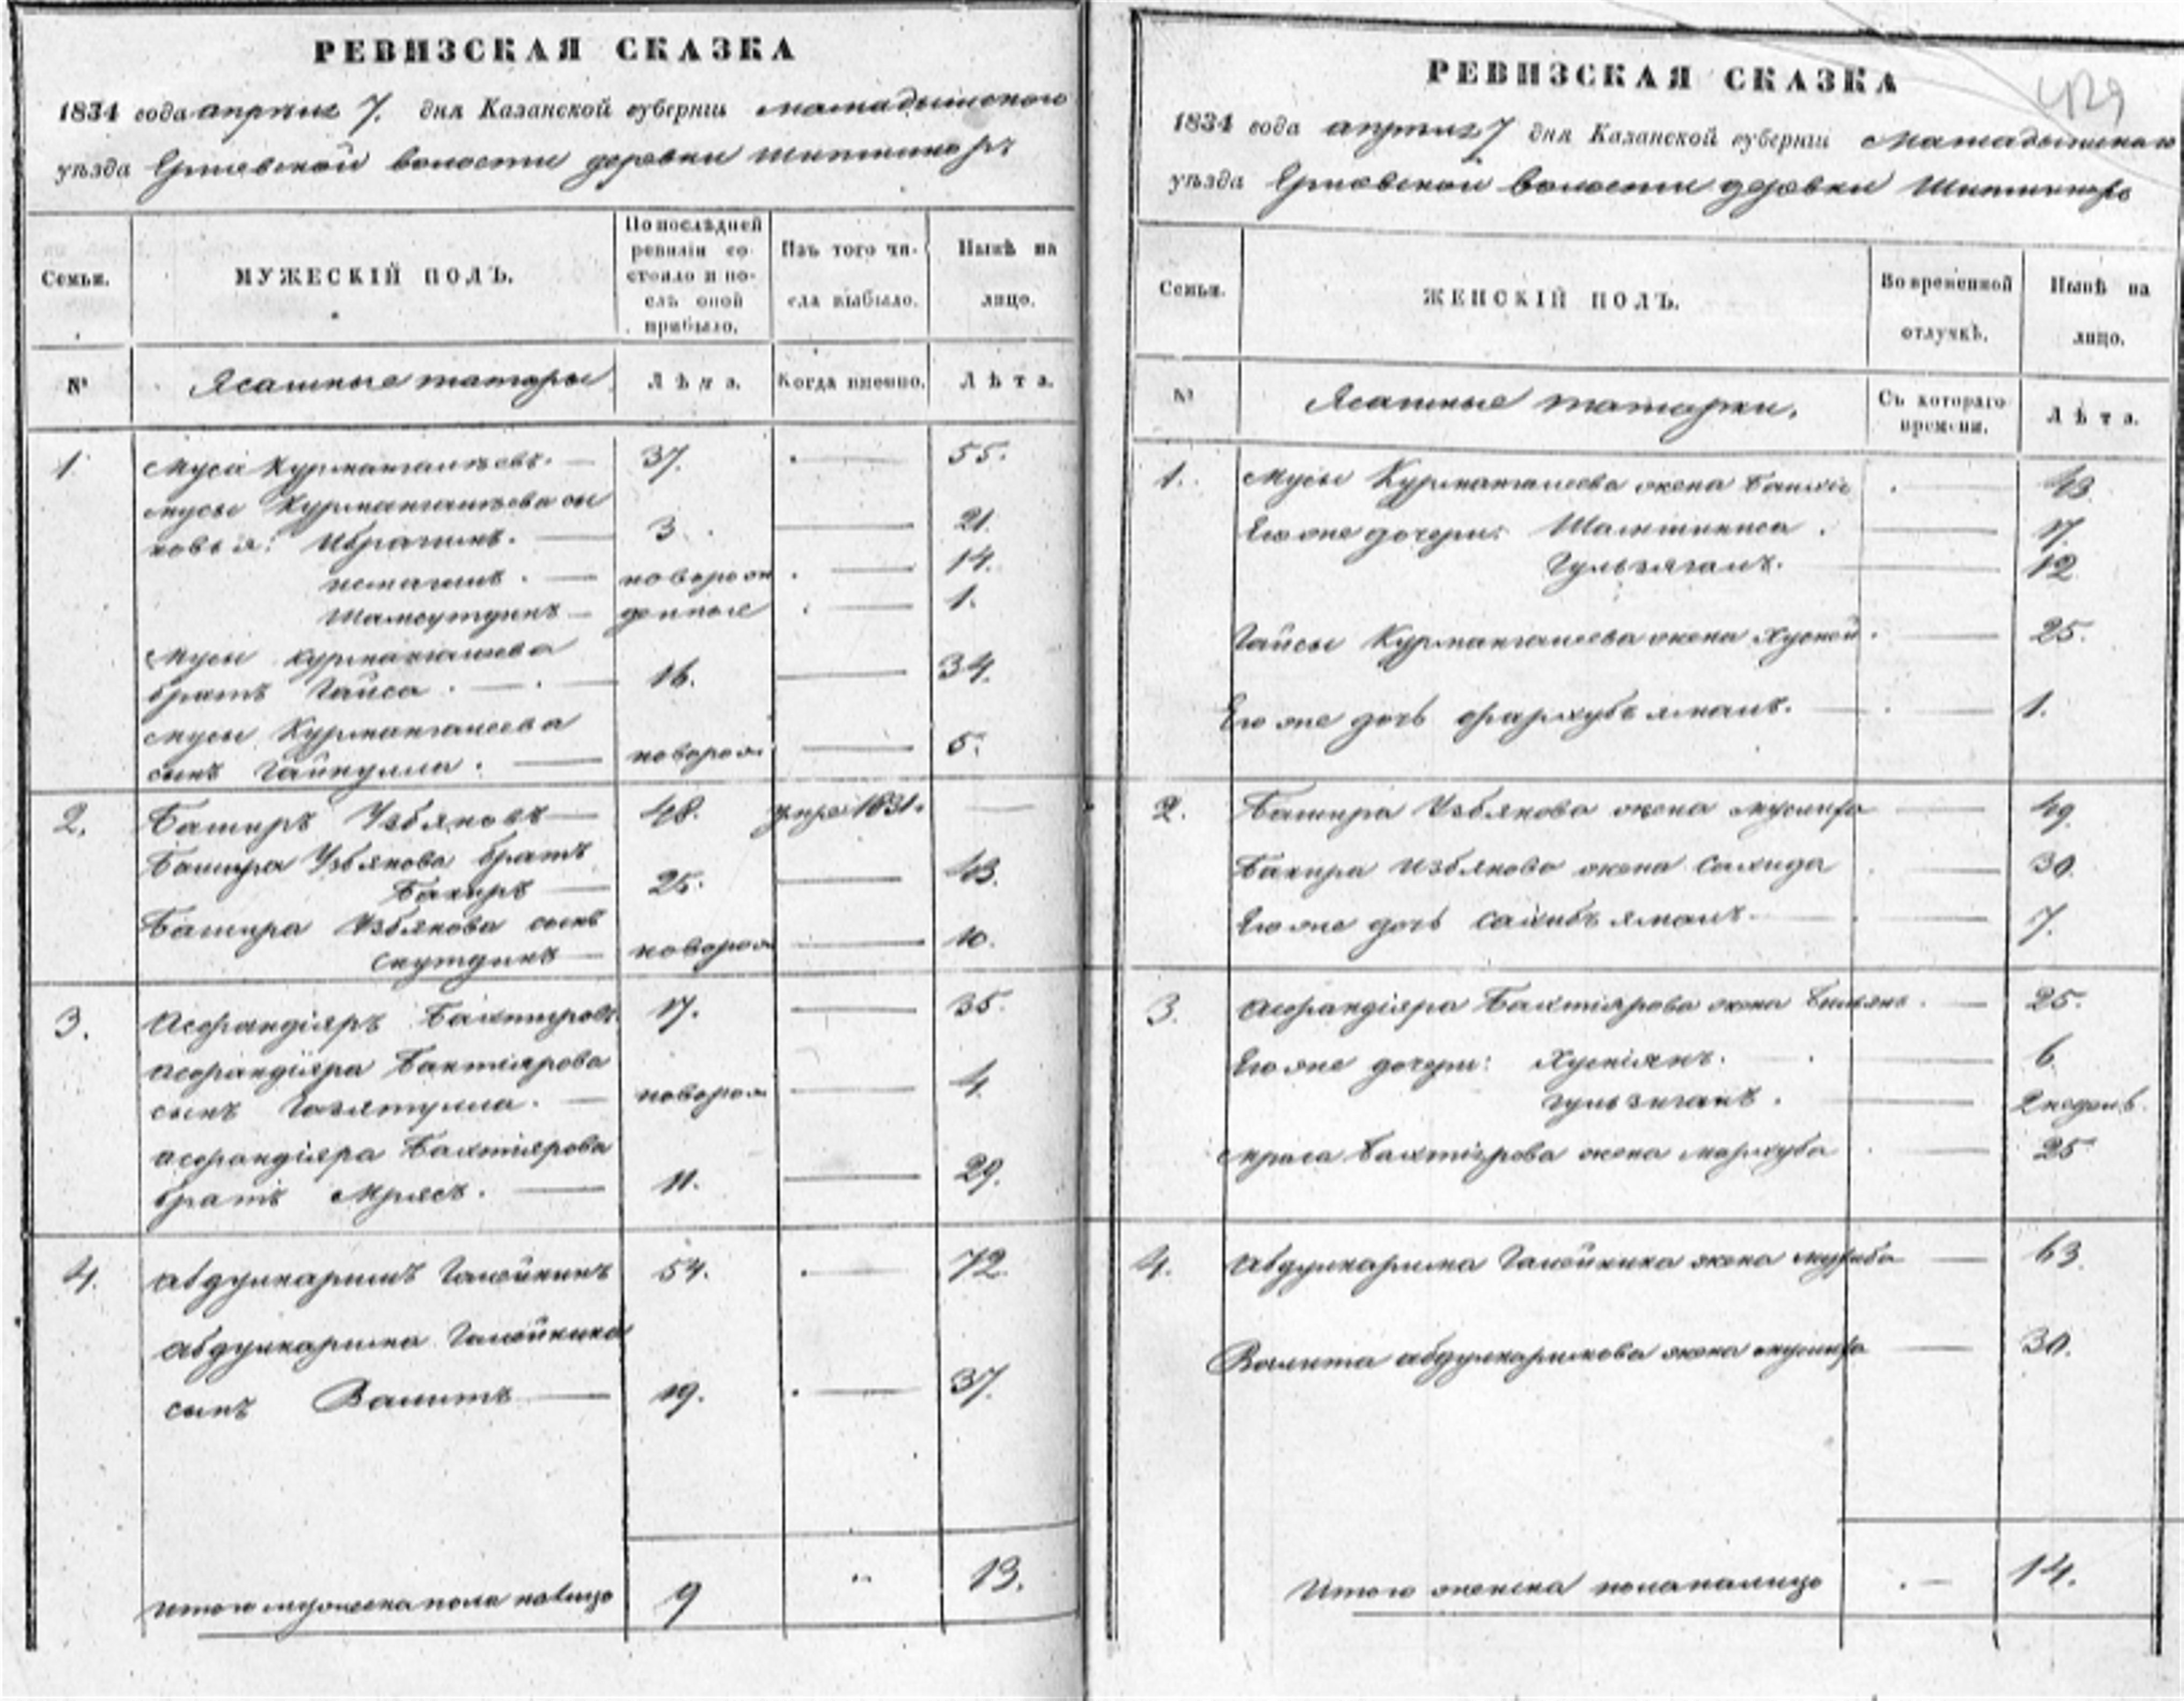 РЕВИЗСКАЯ СКАЗКА
1834 года апреля 7. дня Казанской губерніи мамадышского
уѣзда волости деревни
Семьи.
МУЖЕСКІЙ ПОЛЪ.
По послѣдней
ревизіи со-
стояло и по-
слѣ оной
прибыло.
Изъ того чи-
сла выбыло.
Нынѣ на
лицо.
№
Ясашные татары
Лѣта.
Когда именно.
Лѣта.
1. Муса Курмангалѣевъ. — 37. — 55.
мусы Курмангалѣева сы
новья: Ибрагимъ. — 3. — 21.
исмагилъ. — новорож — 14.
Шамсутдинъ — денные — 1.
Мусы курмангалеева
братъ Гайса. — 16. — 34.
мусы Курмангалеева
сынъ Гайнулла. — новорож — 5.
2. Баширъ Узбяковъ — 48. умре 1831. —
Башира Узбякова братъ
Бакиръ — 25. — 43.
Башира Узбякова сынъ
новорож — 10.
3. Асфандіяръ Бахтіяровъ 17. — 35.
асфандіяра Бахтіярова
сынъ Гизятулла. — новорож — 4.
асфандіяра Бахтіярова
братъ Мрясъ. — 11. — 29.
4. абдулкаримъ 54. — 72.
абдулкарима
сынъ Валитъ — 19. — 37.
итого мужеска пола налицо 9 „ 13.
РЕВИЗСКАЯ СКАЗКА
429
1834 года апреля 7 дня Казанской губерніи Мамадышскаго
уѣзда волости деревки
Семьи.
ЖЕНСКІЙ ПОЛЪ.
Во временной
отлучкѣ.
Нынѣ на
лицо.
№
Ясашные татарки.
Съ котораго
времени.
Лѣта.
1. Мусы Курмангалеева жена — 43
Его же дочери: — 17.
— 12
Гайсы Курмангалеева жена Хусней. — 25.
Его же дочь фархубъямалъ. — 1.
2. Башира Узбякова жена муслифа — 49.
Бакира Узбякова жена Сахида — 30.
Его же дочь сахибъямалъ — 7.
3. Асфандіяра Бахтіярова жена — 25.
Его же дочери: Хусніянъ. — 6.
— 2 недель.
Мряса Бахтіярова жена мархуба — 25
4. Абдулкарима жена — 63.
Валита абдулкаримова жена муслифа — 30.
Итого женска пола налицо — 14.